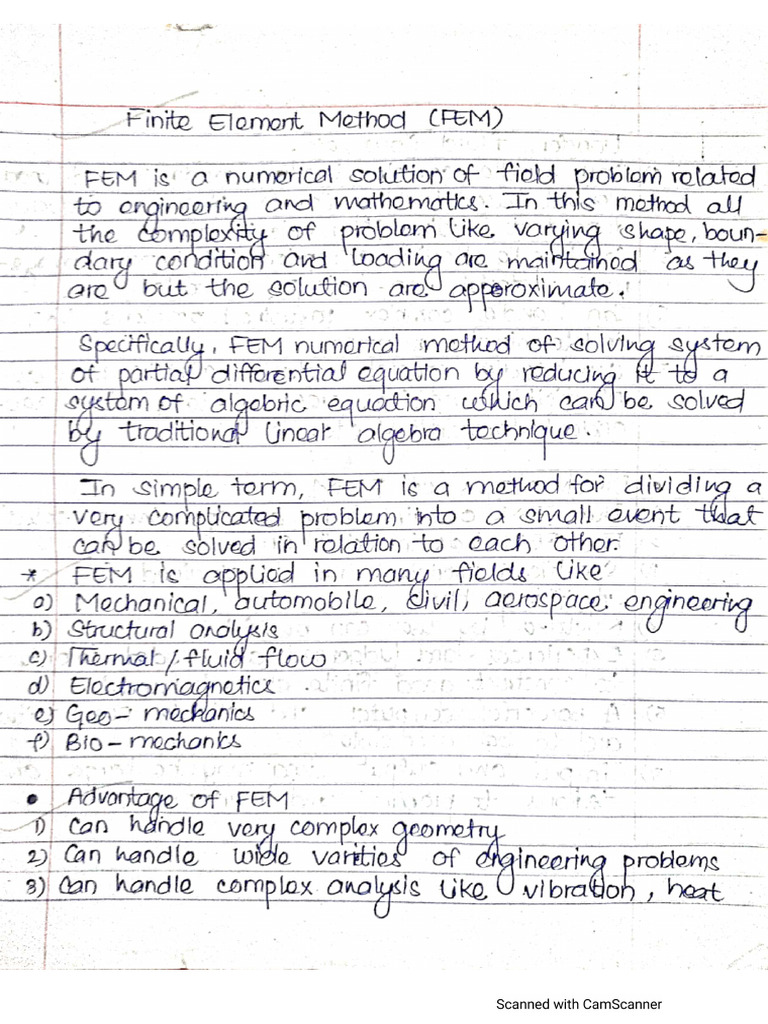 Finite Element Method (FEM)
FEM is a numerical solution of field problem related
to engineering and mathematics. In this method all
the complexity of problem like varying shape, boun-
dary condition and loading are maintained as they
are but the solution are apperoximate.
Specifically, FEM numerical method of solving system
of partial differential equation by reducing it to a
system of algebric equation which can be solved
by traditional linear algebra technique.
In simple term, FEM is a method for dividing a
very complicated problem into a small event that
can be solved in relation to each other.
* FEM is applied in many fields like
a) Mechanical, automobile, civil, aerospace engineering
b) Structural analysis
c) Thermal / fluid flow
d) Electromagnetics
e) Geo-mechanics
f) Bio-mechanics
• Advantage of FEM
1) Can handle very complex geometry
2) Can handle wide varities of engineering problems
3) Can handle complex analysis like vibration, heat
Scanned with CamScanner